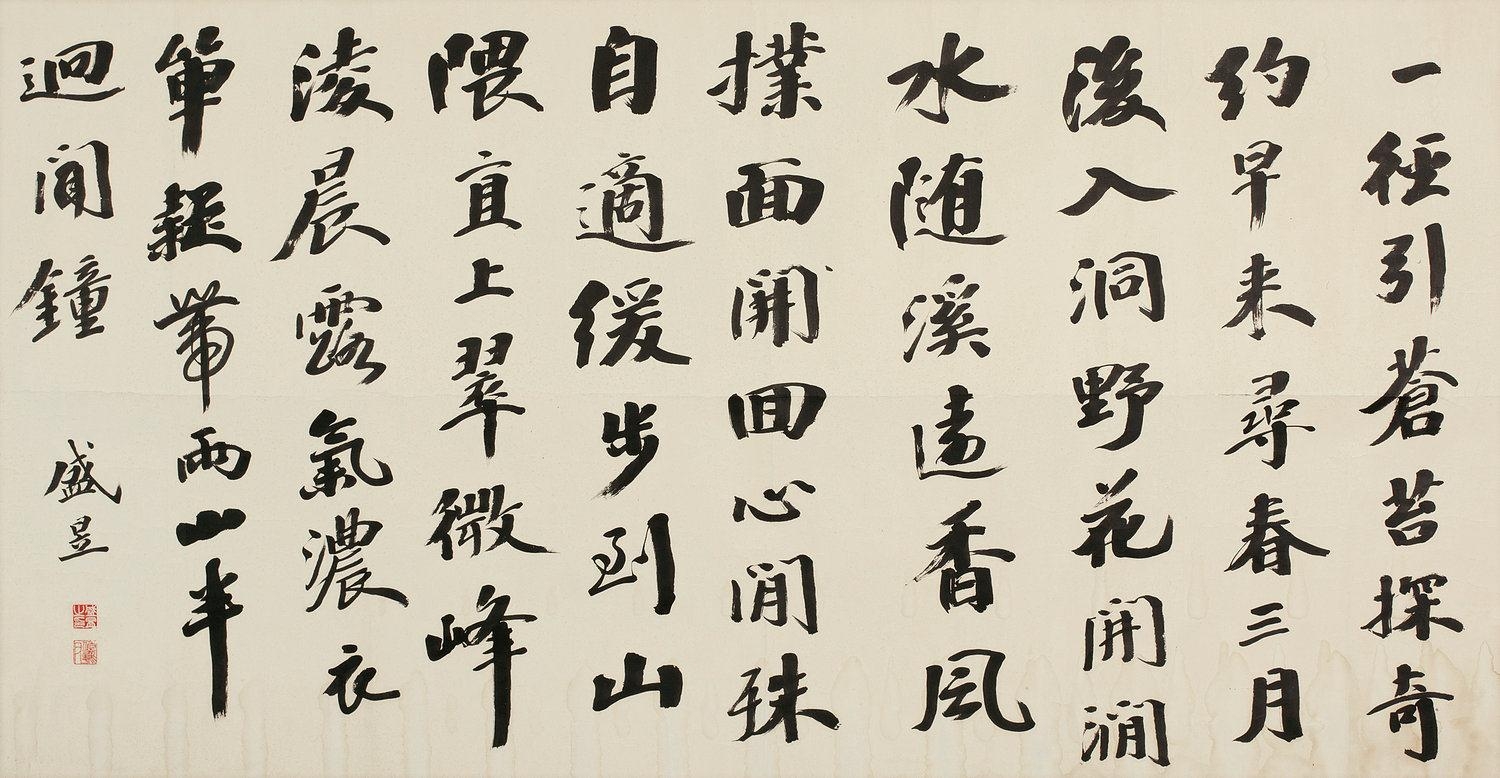 一徑引蒼苔探奇
約早来尋春三月
後入洞野花開澗
水随溪遠香風
撲面開回心閒殊
自適緩步到山
隈宜上翠微峰
淩晨露氣濃衣
單疑帶雨山半
迴聞鐘
盛昱